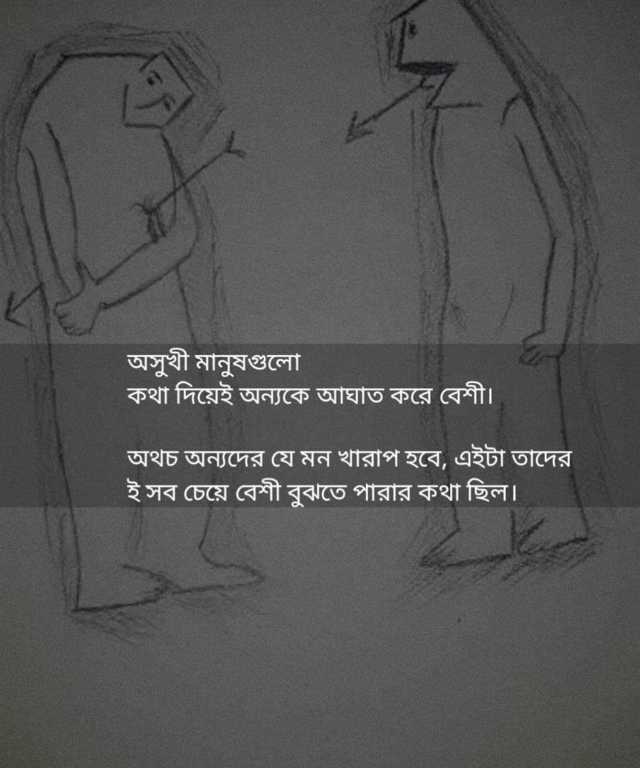 অসুখী মানুষগুলো
কথা দিয়েই অন্যকে আঘাত করে বেশী।
অথচ অন্যদের যে মন খারাপ হবে, এইটা তাদের
ই সব চেয়ে বেশী বুঝতে পারার কথা ছিল।